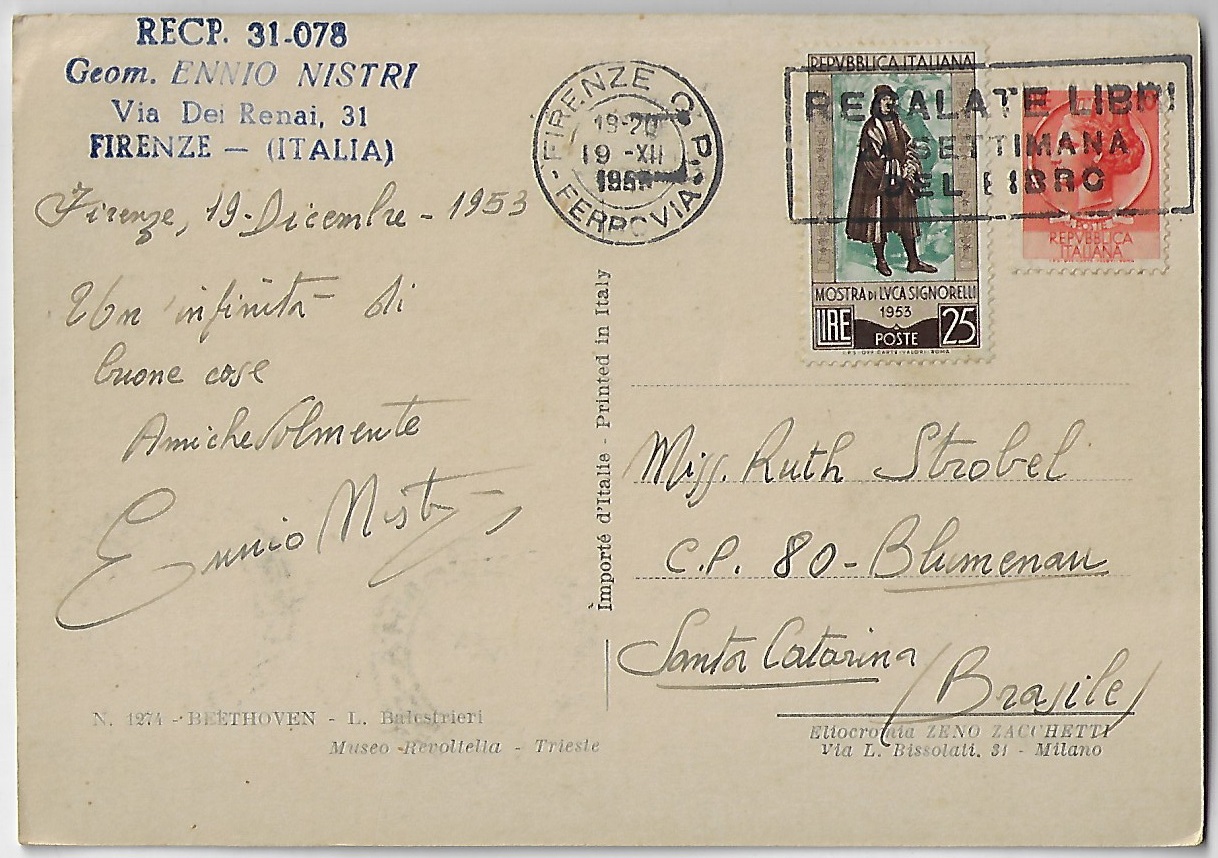 RECP. 31-078
Geom. ENNIO NISTRI
Via Dei Renai, 31
FIRENZE — (ITALIA)
Firenze, 19 - Dicembre - 1953
Un' infinità di
buone cose
Amichevolmente
Ennio Nistri
N. 1274 - BEETHOVEN - L. Balestrieri
Museo Revoltella - Trieste
Importé d'Italie - Printed in Italy
FIRENZE C. P.
19-20
19 -XII
FERROVIA
REPVBBLICA ITALIANA
MOSTRA DI LVCA SIGNORELLI
1953
LIRE POSTE 25
REGALATE LIBRI
SETTIMANA
DEL LIBRO
POSTE
REPVBBLICA
ITALIANA
Miss. Ruth Strobel
C.P. 80 - Blumenau
Santa Catarina
(Brasile)
Eliocromia ZENO ZACCHETTI
Via L. Bissolati, 31 - Milano